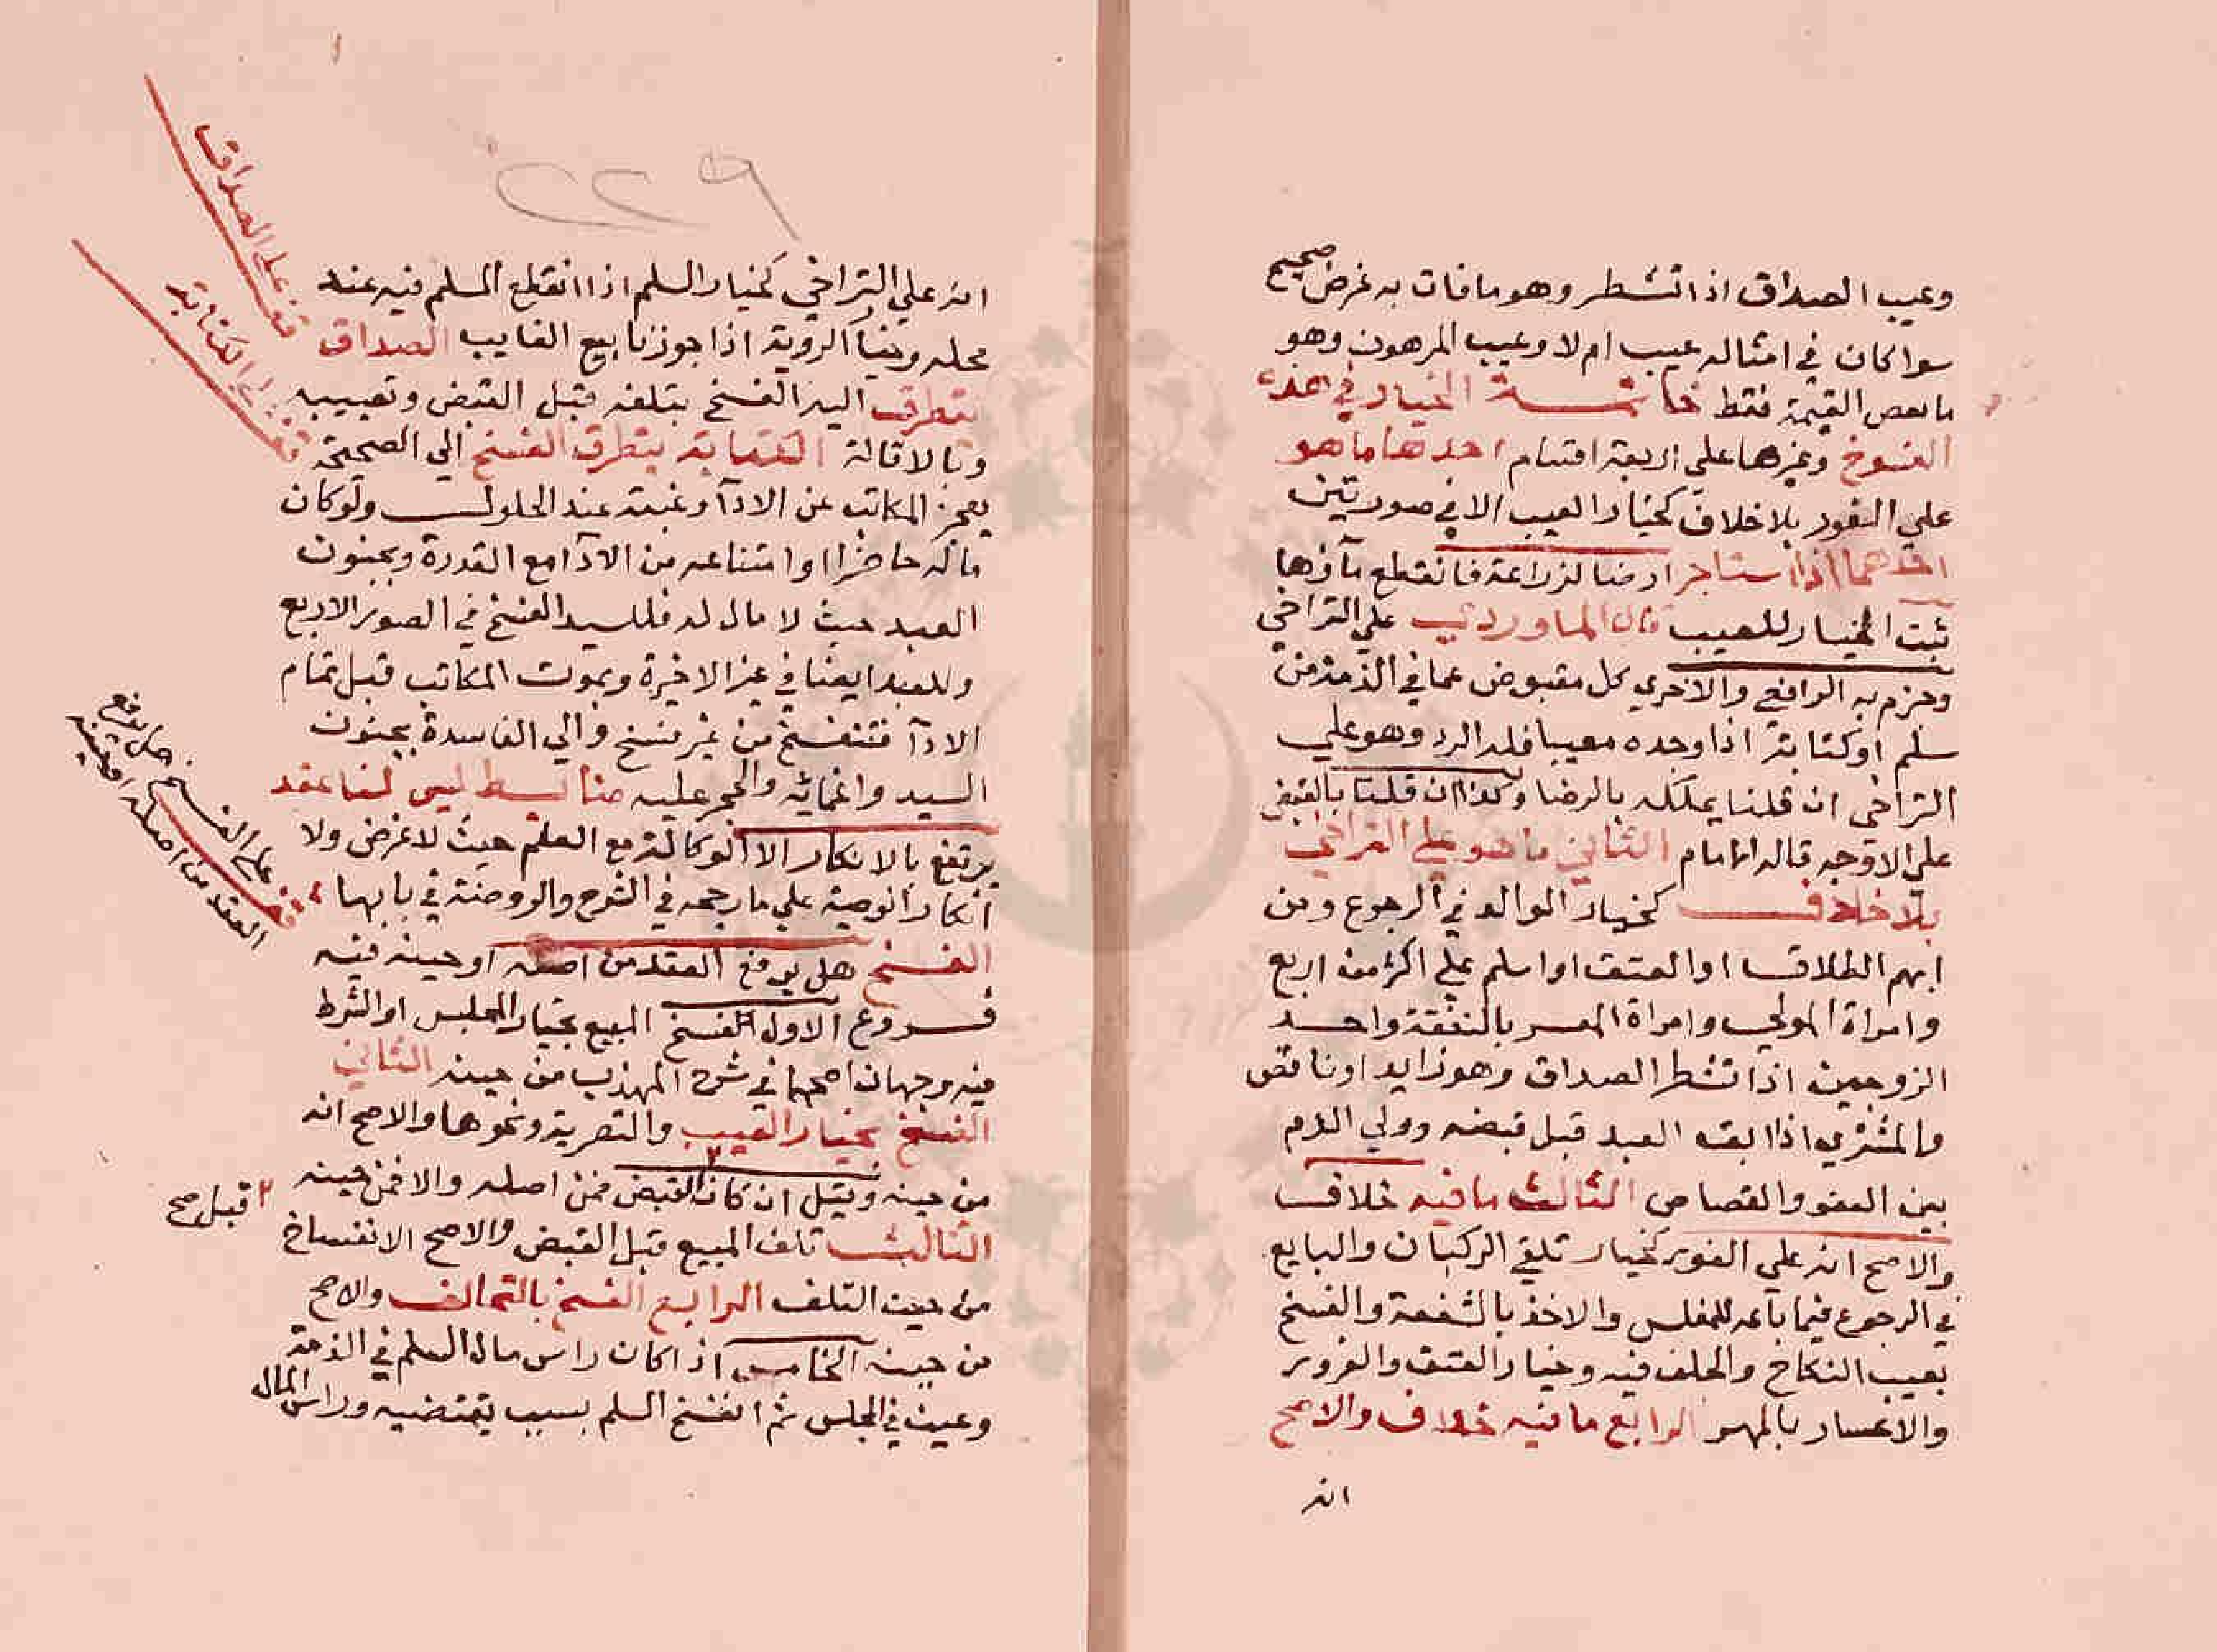 وعيب الصداق اذا تشطر وهو ما فات به غرض صحيح
سوا كان في امثاله عيب ام لا وعيب المرهون وهو
ما نقص القيمة فقط خاتمـــة الخيار في هذه
الفسوخ وغيرها على اربعة اقسام احدها ما هو
علي الفور بلا خلاف كخيار العيب الا في صورتين
احدهما اذا استاجر ارضا لزراعة فانقطع مآؤها
ثبت الخيار للعيب قال الماوردي علي التراخي
وجزم به الرافعي والاخري كل مقبوض عما في الذمة من
سلم او كتابة اذا وجده معيبا فله الرد وهو علي
التراخي ان قلنا يملكه بالرضا وكذا ان قلنا بالقبض
علي الاوجه قاله الامام الثاني ما هو علي التراخي
بلا خلاف كخيار الوالد في الرجوع ومن
ابهم الطلاق او العتق او اسلم علي اكثر من اربع
وامراة المولي وامراة المعسر بالنفقة واحــد
الزوجين اذا تشطر الصداق وهو زايد او ناقص
والمشتري اذا ابق العبد قبل قبضه وولي الدم
بين العفو والقصاص الثالث ما فيه خلاف
والاصح انه علي الفور كخيار تلقي الركبان والبايع
في الرجوع فيما باعه للمفلس والاخذ بالشفعة والفسخ
بعيب النكاح والخلف فيه وخيار العتق والغرور
والاعسار بالمهر الرابع ما فيه خلاف والاصح
انه
٢٢٩
انه علي التراخي كخيار السلم اذا انقطع المسلم فيه عند
محله وخيار الروية اذا جوزنا بيع الغايب الصداق
يتطرق اليه الفسخ بتلفه قبل القبض وتعييبه
وبالاقالة الكتابة يتطرق الفسخ الي الصحيحة
بعجز المكاتب عن الادآ وغيبته عند الحلول ولو كان
ماله حاضرا او امتناعه من الادآ مع القدرة وبجنون
العبد حيث لا مال له فللسيد الفسخ في الصور الاربع
وللعبد ايضا في غير الاخيرة وبموت المكاتب قبل تمام
الادآ فتنفسخ من غير فسخ والي الفاسدة بجنون
السيد واغمائه والحجر عليه ضابط ليس لنا عقد
يرتفع بالانكار الا الوكالة مع العلم حيث لا غرض ولا
انكار الوصية علي ما رجحه في الشرح والروضة في بابها
الفسخ هل يرفع العقد من اصله او حينه فيه
فــروع الاول الفسخ المبيع بخيار المجلس او الشرط
فيه وجهان اصحهما في شرح المهذب من حينه الثاني
الفسخ بخيار العيب والتصرية ونحوها والاصح انه
من حينه وقيل ان كان ٢ القبض فمن اصله والا فمن حينه
٢ قبل صح
الثالث تلف المبيع قبل القبض والاصح الانفساخ
من حين التلف الرابع الفسخ بالتحالف والاصح
من حينه الخامس اذا كان راس مال السلم في الذمة
وعين في المجلس ثم انفسخ السلم بسبب يقتضيه وراس المال
قف على الصداق
قف على الكتابة
قف على الفسخ هل يرفع
العقد من اصله او حينه